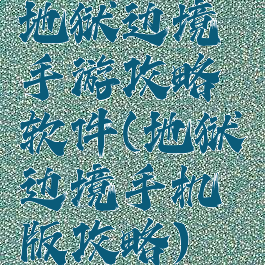 地狱边境
手游攻略
软件(地狱
边境手机
版攻略)